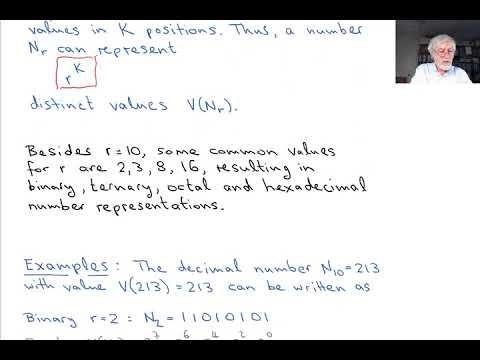 values in K positions. Thus, a number
Nr can represent
r^K
distinct values V(Nr).
Besides r=10, some common values
for r are 2,3,8,16, resulting in
binary, ternary, octal and hexadecimal
number representations.
Examples: The decimal number N10=213
with value V(213)=213 can be written as
Binary r=2: N2=11010101
7 6 4 2 0